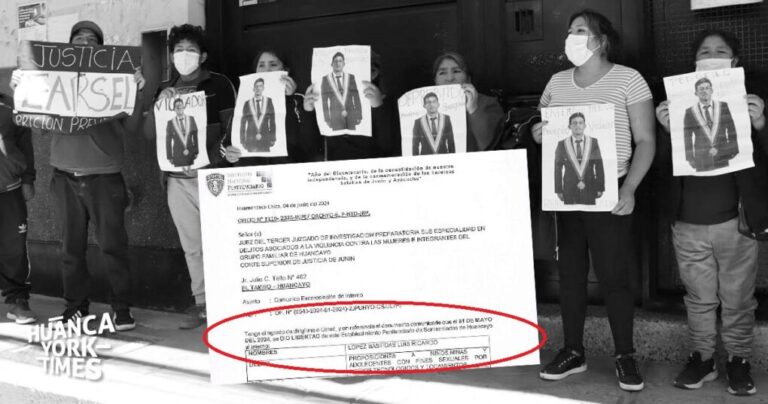 JUSTICIA
CARSEL
PRICION PREV
VIOLADOR
INSTITUTO
NACIONAL
PENITENCIARIO
"Año del Bicentenario, de la consolidación de nuestra
independencia, y de la conmemoración de las heroicas
batallas de Junín y Ayacucho"
Huamancaca Chico, 04 de junio del 2024
OFICIO N°
Señor(a)
JUEZ DEL TERCER JUZGADO DE INVESTIGACION PREPARATORIA SUB ESPECIALIDAD EN
DELITOS ASOCIADOS A LA VIOLENCIA CONTRA LAS MUJERES E INTEGRANTES DEL
GRUPO FAMILIAR DE HUANCAYO
CORTE SUPERIOR DE JUSTICIA DE JUNIN
Jr. Julio C. Tello N° 462
EL TAMBO – HUANCAYO
Asunto : Comunica Excarcelación de Interno
Tengo el agrado de dirigirme a Usted, y en referencia al documento comunicarle que el 31 DE MAYO
DEL 2024, se DIO LIBERTAD de este Establecimiento Penitenciario de Sentenciados de Huancayo
al interno:
NOMBRES LOPEZ BASTIDAS LUIS RICARDO
PROPOSICIONES A NIÑOS, NIÑAS Y
ADOLESCENTES CON FINES SEXUALES POR
MEDIOS TECNOLOGICOS Y TOCAMIENTOS
HUANCA
YORK
TIMES